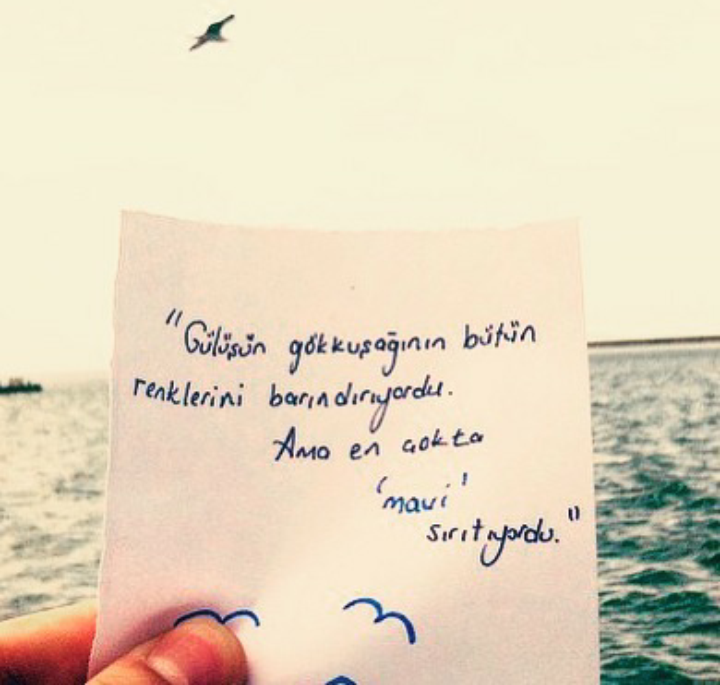 "Gülüşün gökkuşağının bütün
renklerini barındırıyordu.
Ama en çokta
'mavi'
sırıtıyordu."